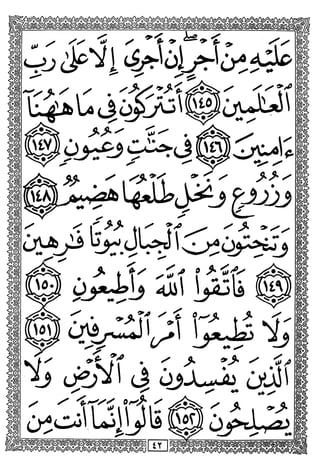 عَلَيْهِ مِنْ أَجْرٍ ۖ إِنْ أَجْرِىَ إِلَّا عَلَىٰ رَبِّ
الْعَالَمِينَ ١٤٥ أَتُتْرَكُونَ فِى مَا هَٰهُنَآ
ءَامِنِينَ ١٤٦ فِى جَنَّٰتٍ وَعُيُونٍ ١٤٧
وَزُرُوعٍ وَنَخْلٍ طَلْعُهَا هَضِيمٌ ١٤٨
وَتَنْحِتُونَ مِنَ الْجِبَالِ بُيُوتًا فَٰرِهِينَ
١٤٩ فَاتَّقُوا اللَّهَ وَأَطِيعُونِ ١٥٠
وَلَا تُطِيعُوٓا أَمْرَ الْمُسْرِفِينَ ١٥١
الَّذِينَ يُفْسِدُونَ فِى الْأَرْضِ وَلَا
يُصْلِحُونَ ١٥٢ قَالُوٓا إِنَّمَآ أَنتَ مِنَ
٤٢